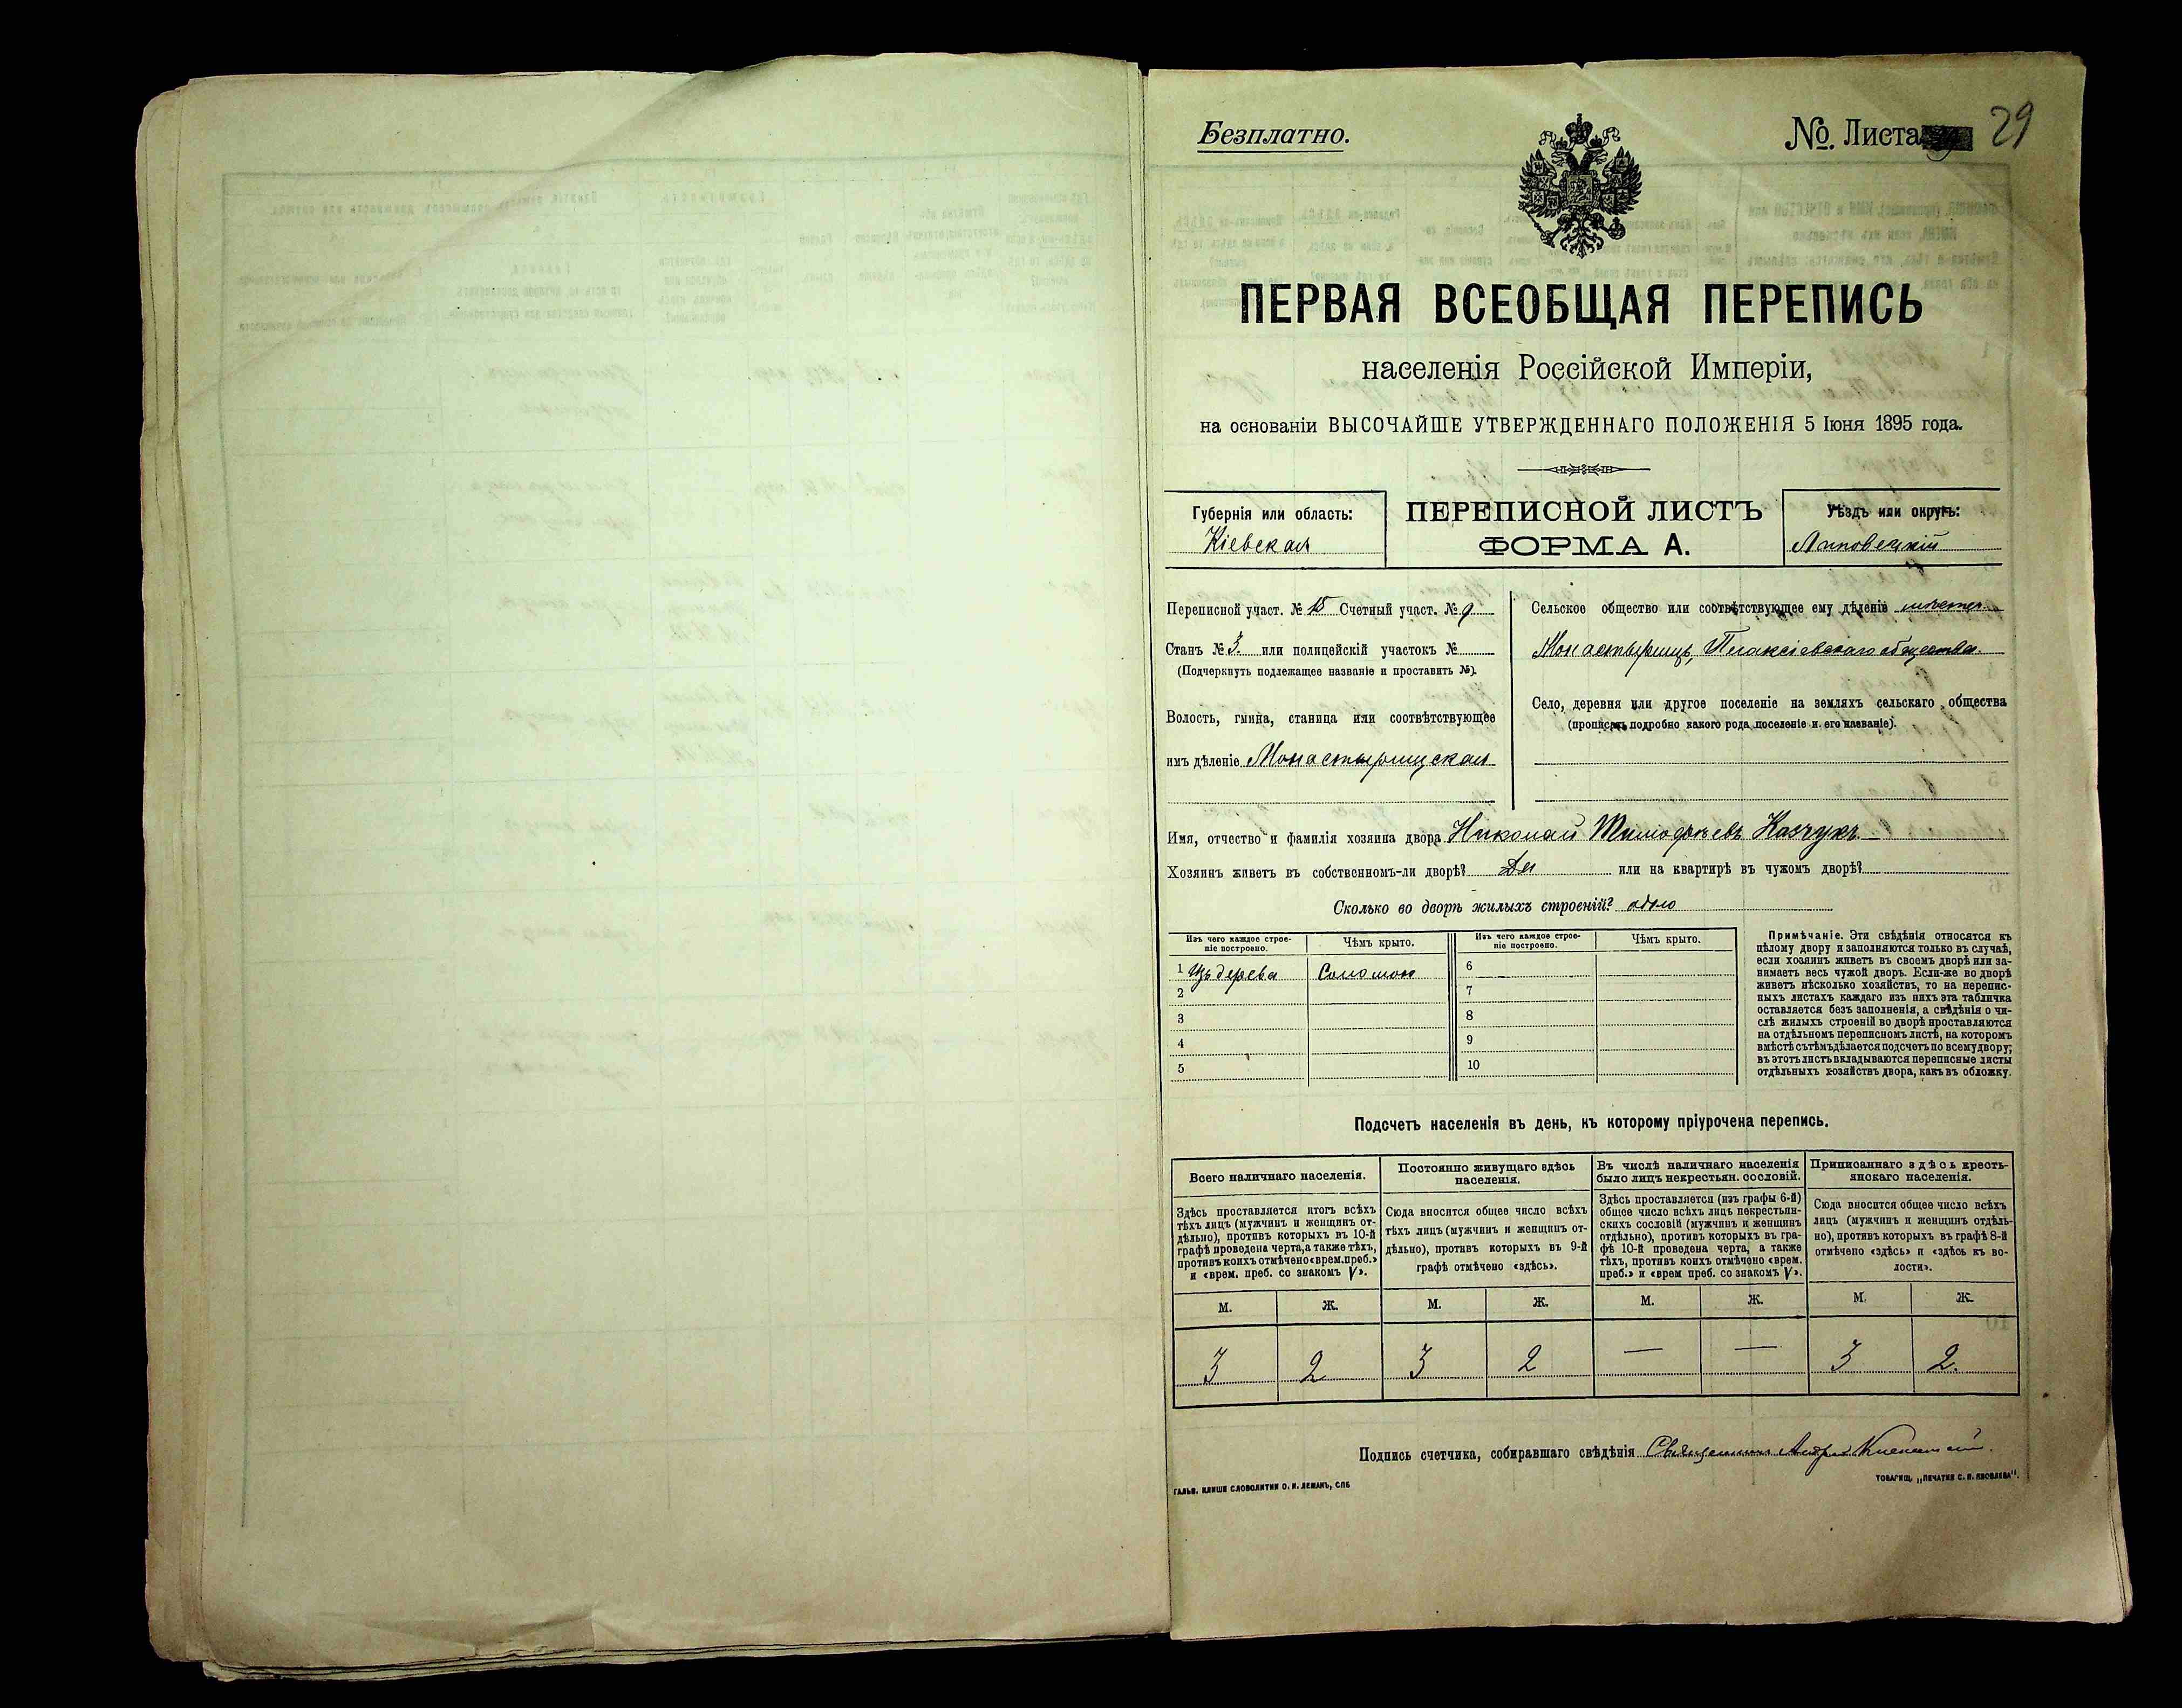 Безплатно.
№. Листа 29
ПЕРВАЯ ВСЕОБЩАЯ ПЕРЕПИСЬ
населенія Россійской Имперіи,
на основаніи ВЫСОЧАЙШЕ УТВЕРЖДЕННАГО ПОЛОЖЕНІЯ 5 Іюня 1895 года.
Губернія или область:
Кіевская
ПЕРЕПИСНОЙ ЛИСТЪ
ФОРМА А.
Уѣздъ или округъ:
Липовецкій
Переписной участ. № 15 Счетный участ. № 9
Станъ № 3. или полицейскій участокъ №
(Подчеркнуть подлежащее названіе и проставить №).
Волость, гмина, станица или соотвѣтствующее
имъ дѣленіе Монастырищская
Сельское общество или соотвѣтствующее ему дѣленіе
Монастырище, общества.
Село, деревня или другое поселеніе на земляхъ сельскаго общества
(прописать подробно какого рода поселеніе и его названіе).
Имя, отчество и фамилія хозяина двора Николай Тимофѣевъ Касчукъ
Хозяинъ живетъ въ собственномъ-ли дворѣ? Да или на квартирѣ въ чужомъ дворѣ?
Сколько во дворѣ жилыхъ строеній? одно
Изъ чего каждое строе-
ніе построено.
Чѣмъ крыто.
Изъ чего каждое строе-
ніе построено.
Чѣмъ крыто.
1 Изъ дерева Соломою
2
3
4
5
6
7
8
9
10
Примѣчаніе. Эти свѣдѣнія относятся къ
цѣлому двору и заполняются только въ случаѣ,
если хозяинъ живетъ въ своемъ дворѣ или за-
нимаетъ весь чужой дворъ. Если-же во дворѣ
живетъ нѣсколько хозяйствъ, то на перепис-
ныхъ листахъ каждаго изъ нихъ эта табличка
оставляется безъ заполненія, а свѣдѣнія о чи-
слѣ жилыхъ строеній во дворѣ проставляются
на отдѣльномъ переписномъ листѣ, на которомъ
вмѣстѣ съ тѣмъ дѣлается подсчетъ по всему двору;
въ этотъ листъ вкладываются переписные листы
отдѣльныхъ хозяйствъ двора, какъ въ обложку.
Подсчетъ населенія въ день, къ которому пріурочена перепись.
Всего наличнаго населенія.
Здѣсь проставляется итогъ всѣхъ
тѣхъ лицъ (мужчинъ и женщинъ от-
дѣльно), противъ которыхъ въ 10-й
графѣ проведена черта, а также тѣхъ,
противъ коихъ отмѣчено «врем.преб.»
и «врем. преб. со знакомъ V».
Постоянно живущаго здѣсь
населенія.
Сюда вносится общее число всѣхъ
тѣхъ лицъ (мужчинъ и женщинъ от-
дѣльно), противъ которыхъ въ 9-й
графѣ отмѣчено «здѣсь».
Въ числѣ наличнаго населенія
было лицъ некрестьян. сословій.
Здѣсь проставляется (изъ графы 6-й)
общее число всѣхъ лицъ некрестьян-
скихъ сословій (мужчинъ и женщинъ
отдѣльно), противъ которыхъ въ гра-
фѣ 10-й проведена черта, а также
тѣхъ, противъ коихъ отмѣчено «врем.
преб.» и «врем преб. со знакомъ V».
Приписаннаго здѣсь кресть-
янскаго населенія.
Сюда вносится общее число всѣхъ
лицъ (мужчинъ и женщинъ отдѣль-
но), противъ которыхъ въ графѣ 8-й
отмѣчено «здѣсь» и «здѣсь къ во-
лости».
М. Ж. М. Ж. М. Ж. М. Ж.
3 2 3 2 — — 3 2.
Подпись счетчика, собиравшаго свѣдѣнія Священникъ
ГАЛЬВ. КЛИШЕ СЛОВОЛИТНИ О. И. ЛЕМАНЪ, СПБ
ТОВАРИЩ. „ПЕЧАТНЯ С. П. ЯКОВЛЕВА".